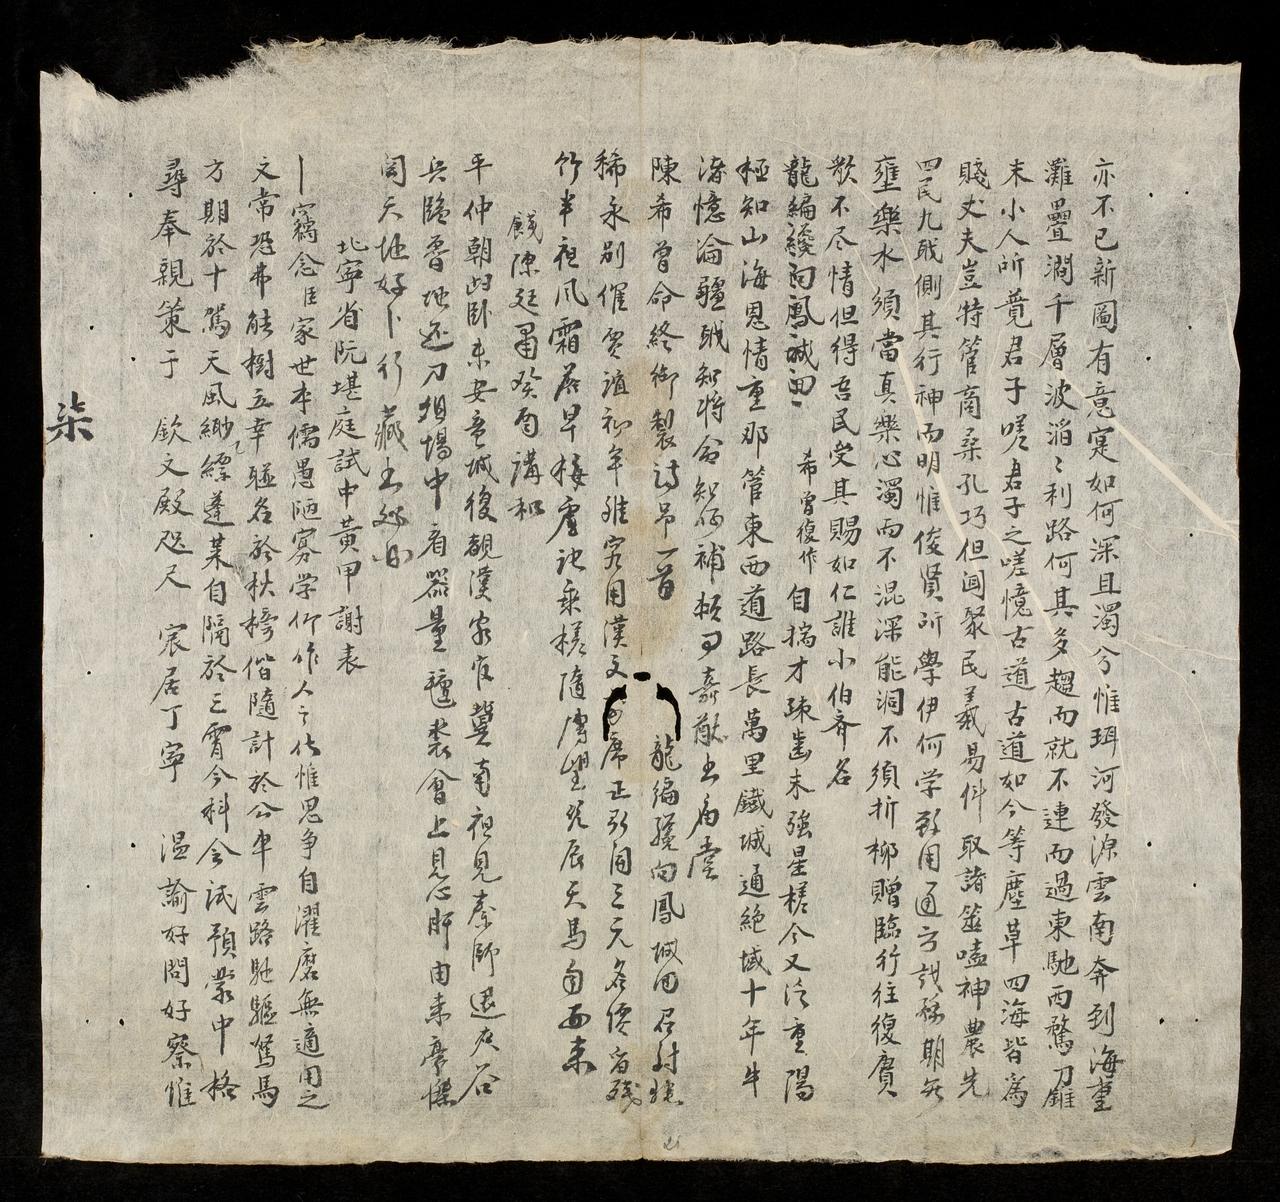 亦不已新圖有意寔如何深且濁兮惟珥河發源雲南奔到海重
灘疊澗千層波滔〻利路何其多趨而就不連而過東馳西騖刀錐
末小人所竟君子嗟君子之嗟憶古道古道如今等塵草四海皆為
賤丈夫豈特管商桑孔巧但闻聚民義易什取諸筮嗑神農先
四民九戝側其行神而明惟俊賢所學伊何学致用通方哉務期於
壅樂水須當真樂心濁而不混深能洞不須折柳贈臨行往復賡
歌不尽情但得吾民受其賜如仁誰小伯齊名
龍編纔向鳳城回 希曾復作 自揣才疎齒未強星槎今又泛重陽
極知山海恩情重那管東西道路長萬里鐵城通絕域十年牛
渚憶論疆戝知將命知何補頼有嘉猷出廟堂
陳希曾命終御製詩吊一首 龍編纔向鳳城回召対
稀永别催賈誼初年雖宛用漢文席正所闻三元名價省残
竹半袒风霜落早梅虚說乘槎隨博望光辰天馬自西来
餞陳廷肅癸酉講和
平仲朝歸卧未安意城復覩漢家官冀南袒見秦師退夾谷
兵臨魯地还刀俎場中看器量氊裘會上見心肝由来豪傑
闲天地好卜行藏出处间
北寧省阮堪庭試中黃甲謝表
竊念臣家世本儒愚陋寡学仰作人之化惟思争自濯磨無適用之
文常恐弗能樹立幸联名於秋榜偕隨計於公車雲路馳驅駑馬
方期於十駕天風縹緲蓬萊自隔於三霄今科会試預蒙中格
尋奉親策于 欽文殿咫尺 宸居丁寧 温諭好問好察惟
柒